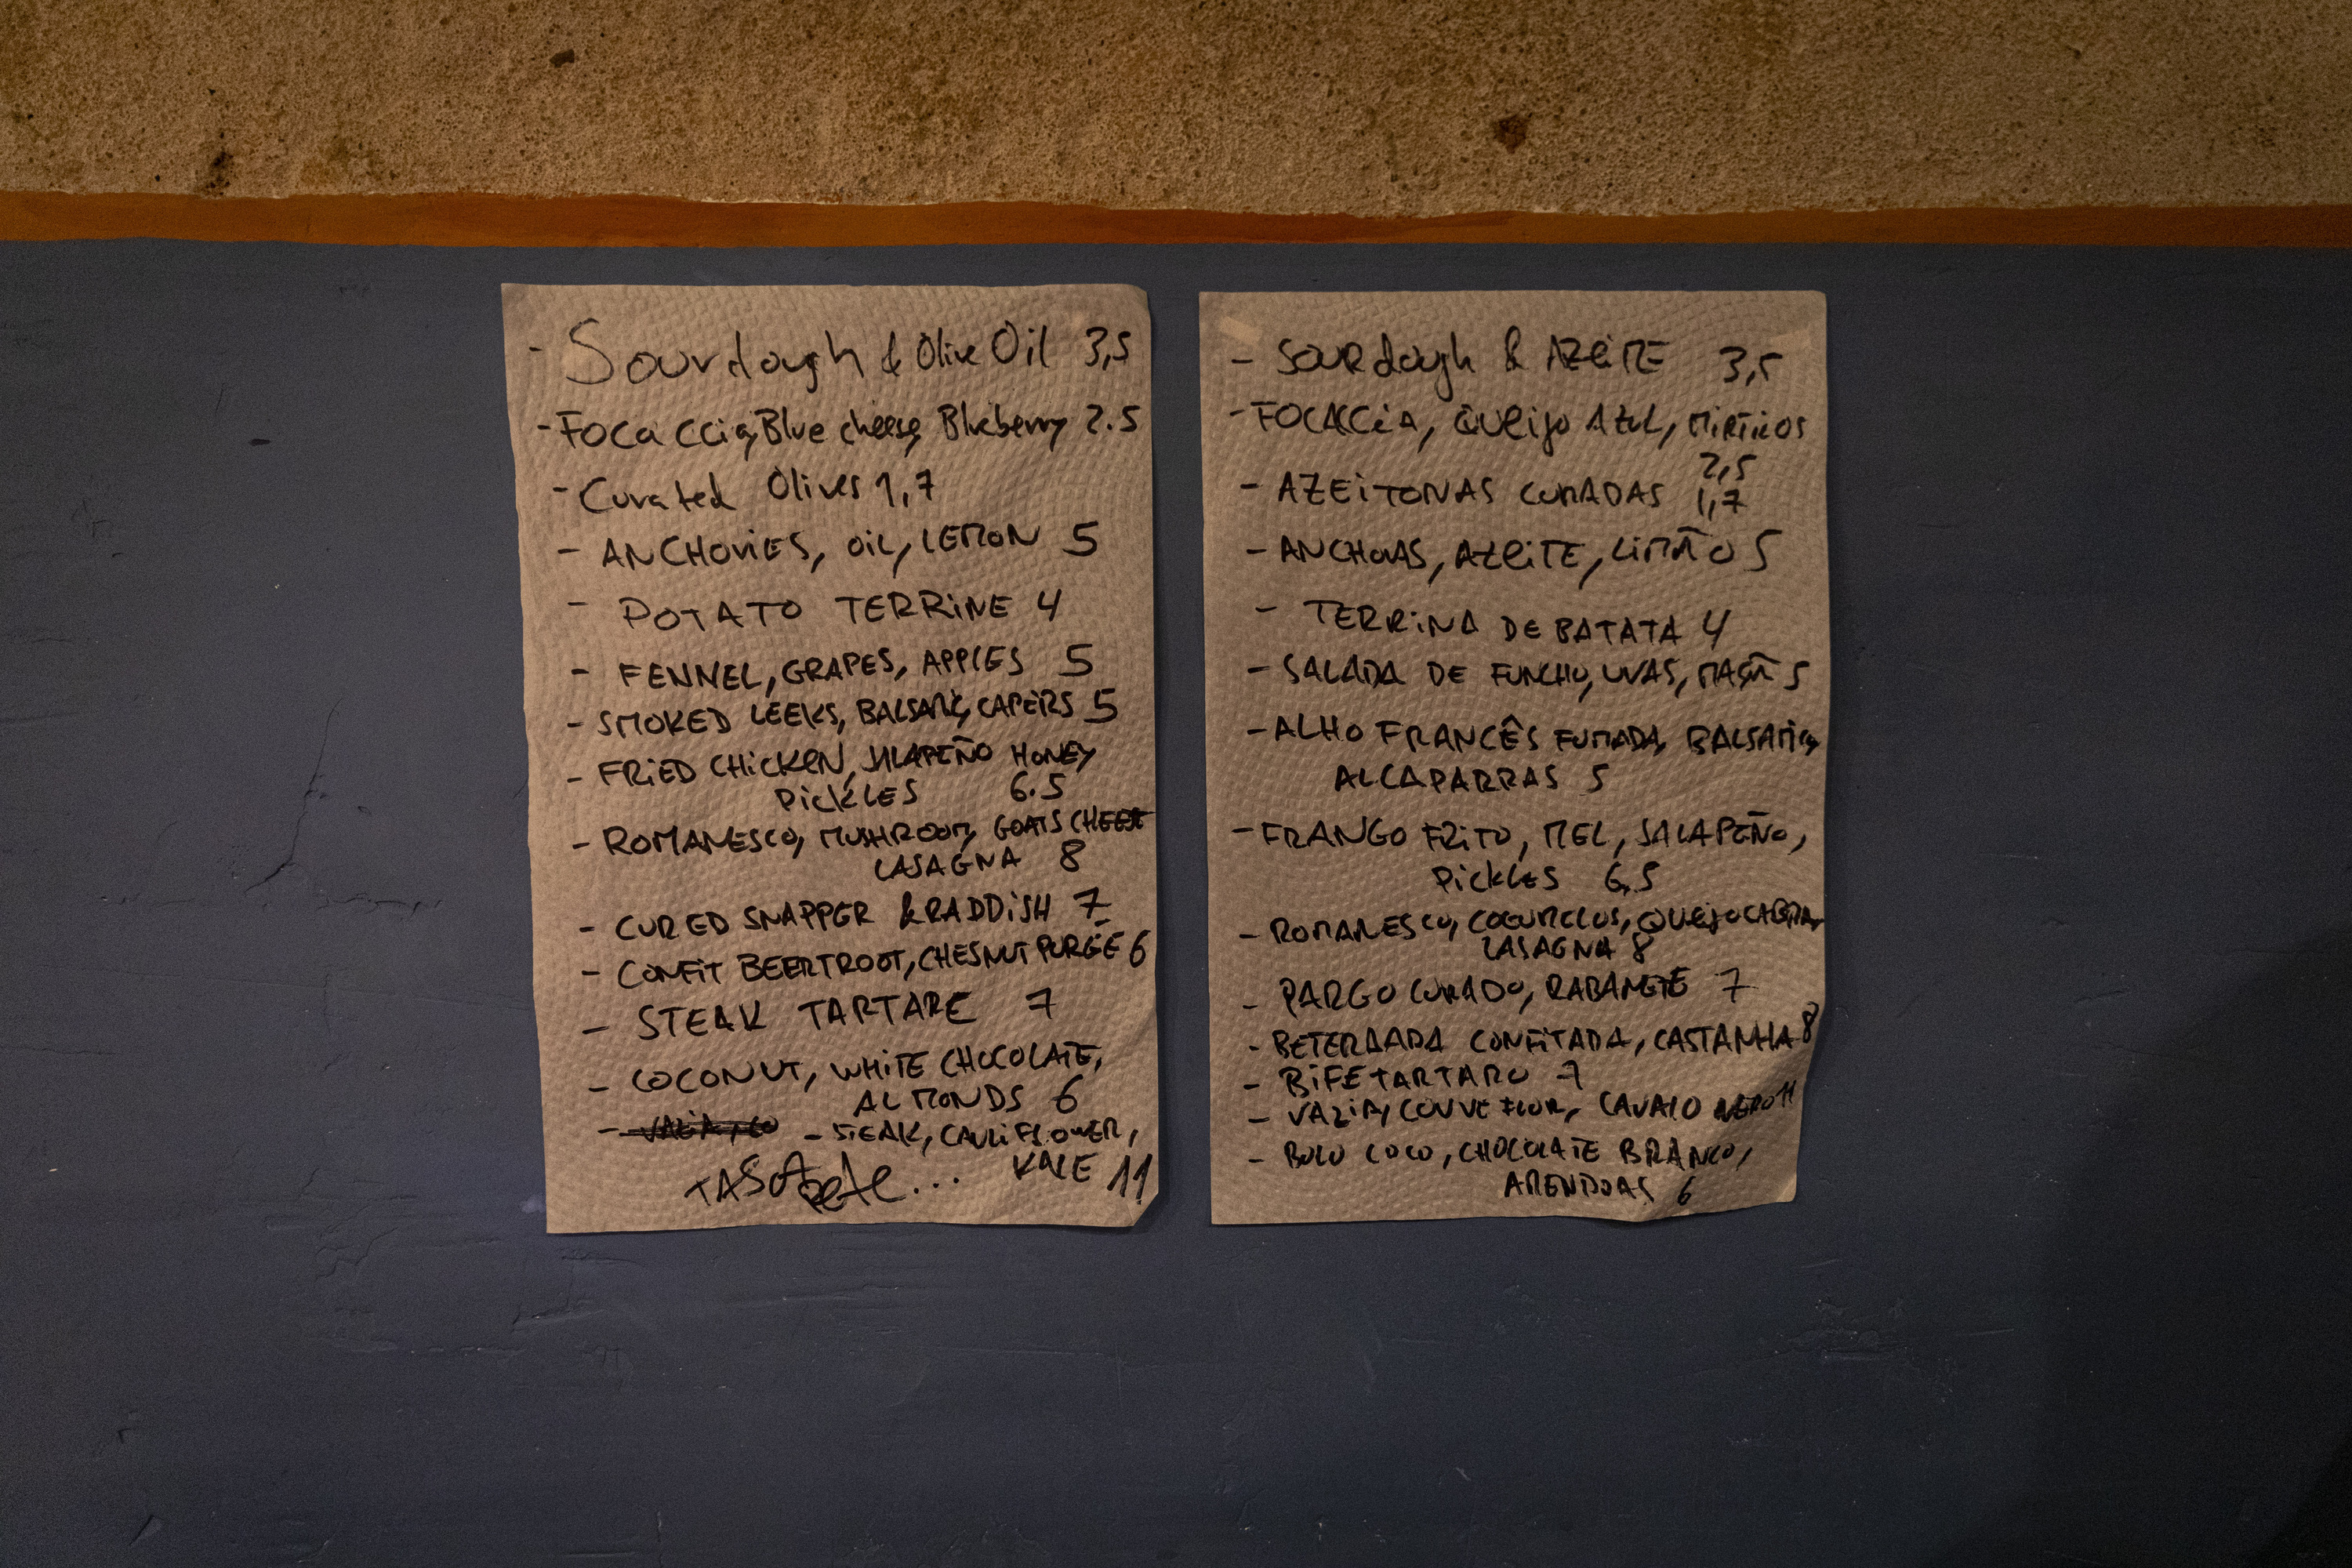 - Sourdough & Olive Oil 3,5
- Focaccia, Blue cheese, Blueberry 2.5
- Curated Olives 1,7
- ANCHOVIES, OIL, LEMON 5
- POTATO TERRINE 4
- FENNEL, GRAPES, APPLES 5
- SMOKED LEEKS, BALSAMIC, CAPERS 5
- FRIED CHICKEN, JALAPEÑO HONEY
PICKLES 6.5
- ROMANESCO, MUSHROOM, GOATS CHEESE
LASAGNA 8
- CURED SNAPPER & RADDISH 7
- CONFIT BEERTROOT, CHESNUT PURÉE 6
- STEAK TARTARE 7
- COCONUT, WHITE CHOCOLATE,
ALMONDS 6
- STEAK, CAULIFLOWER,
KALE 11
- SOURdough & AZEITE 3,5
- FOCACCIA, QUEIJO AZUL, MIRTILOS
2,5
- AZEITONAS CURADAS 1,7
- ANCHOVAS, AZEITE, LIMÃO 5
- TERRINA DE BATATA 4
- SALADA DE FUNCHO, UVAS, MAÇÃ 5
- ALHO FRANCÊS FUMADA, BALSAMICO,
ALCAPARRAS 5
- FRANGO FRITO, MEL, JALAPEÑO,
PICKLES 6,5
- ROMANESCO, COGUMELOS, QUEIJO CABRA,
LASAGNA 8
- PARGO CURADO, RABANETE 7
- BETERAADA CONFITADA, CASTANHA 8
- BIFE TARTARO 7
- VAZIA, COUVE FLOR, CAVALO NERO 11
- BOLO COCO, CHOCOLATE BRANCO,
AMENDOAS 6